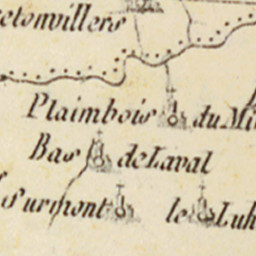 etonvillers
Plaimbois du Mi
Bas de Laval
Surmont le Luh